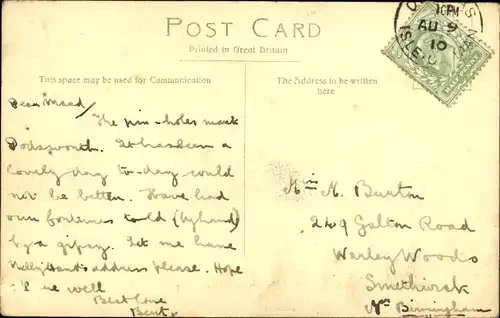 POST CARD
Printed in Great Britain
This space may be used for Communication
The Address to be written
here
10 PM
AU 9
10
Dear Maud/
The pin-holes mark
Dodsworth. It has been a
lovely day to-day could
not be better. Have had
our fortunes told (by hand)
by a gipsy. Let me have
Nelly Hand's address please. Hope
well
Best love
Bert.
Miss M. Burton
249 Galton Road
Warley Woods
Smethwick
Nr Birmingham